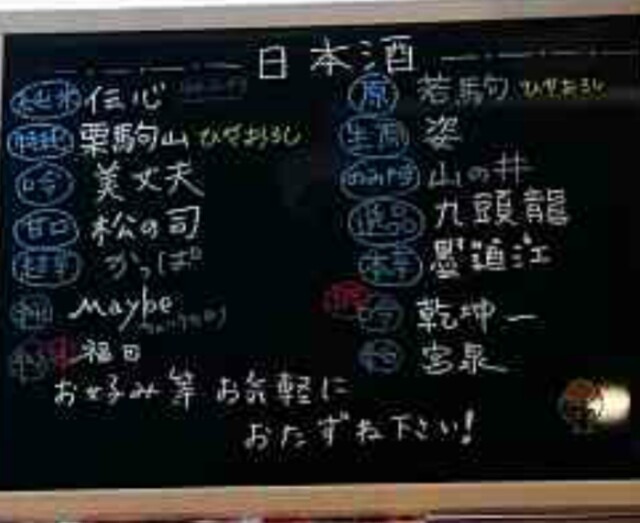 日本酒
伝心
栗駒山 ひやおろし
吟 美丈夫
甘口 松の司
超辛 かっぱ
Maybe
福田
原 若駒 ひやおろし
生原 姿
山の井
逸品 九頭龍
墨廼江
吟 乾坤一
宮泉
お好み等 お気軽に
おたずね下さい!